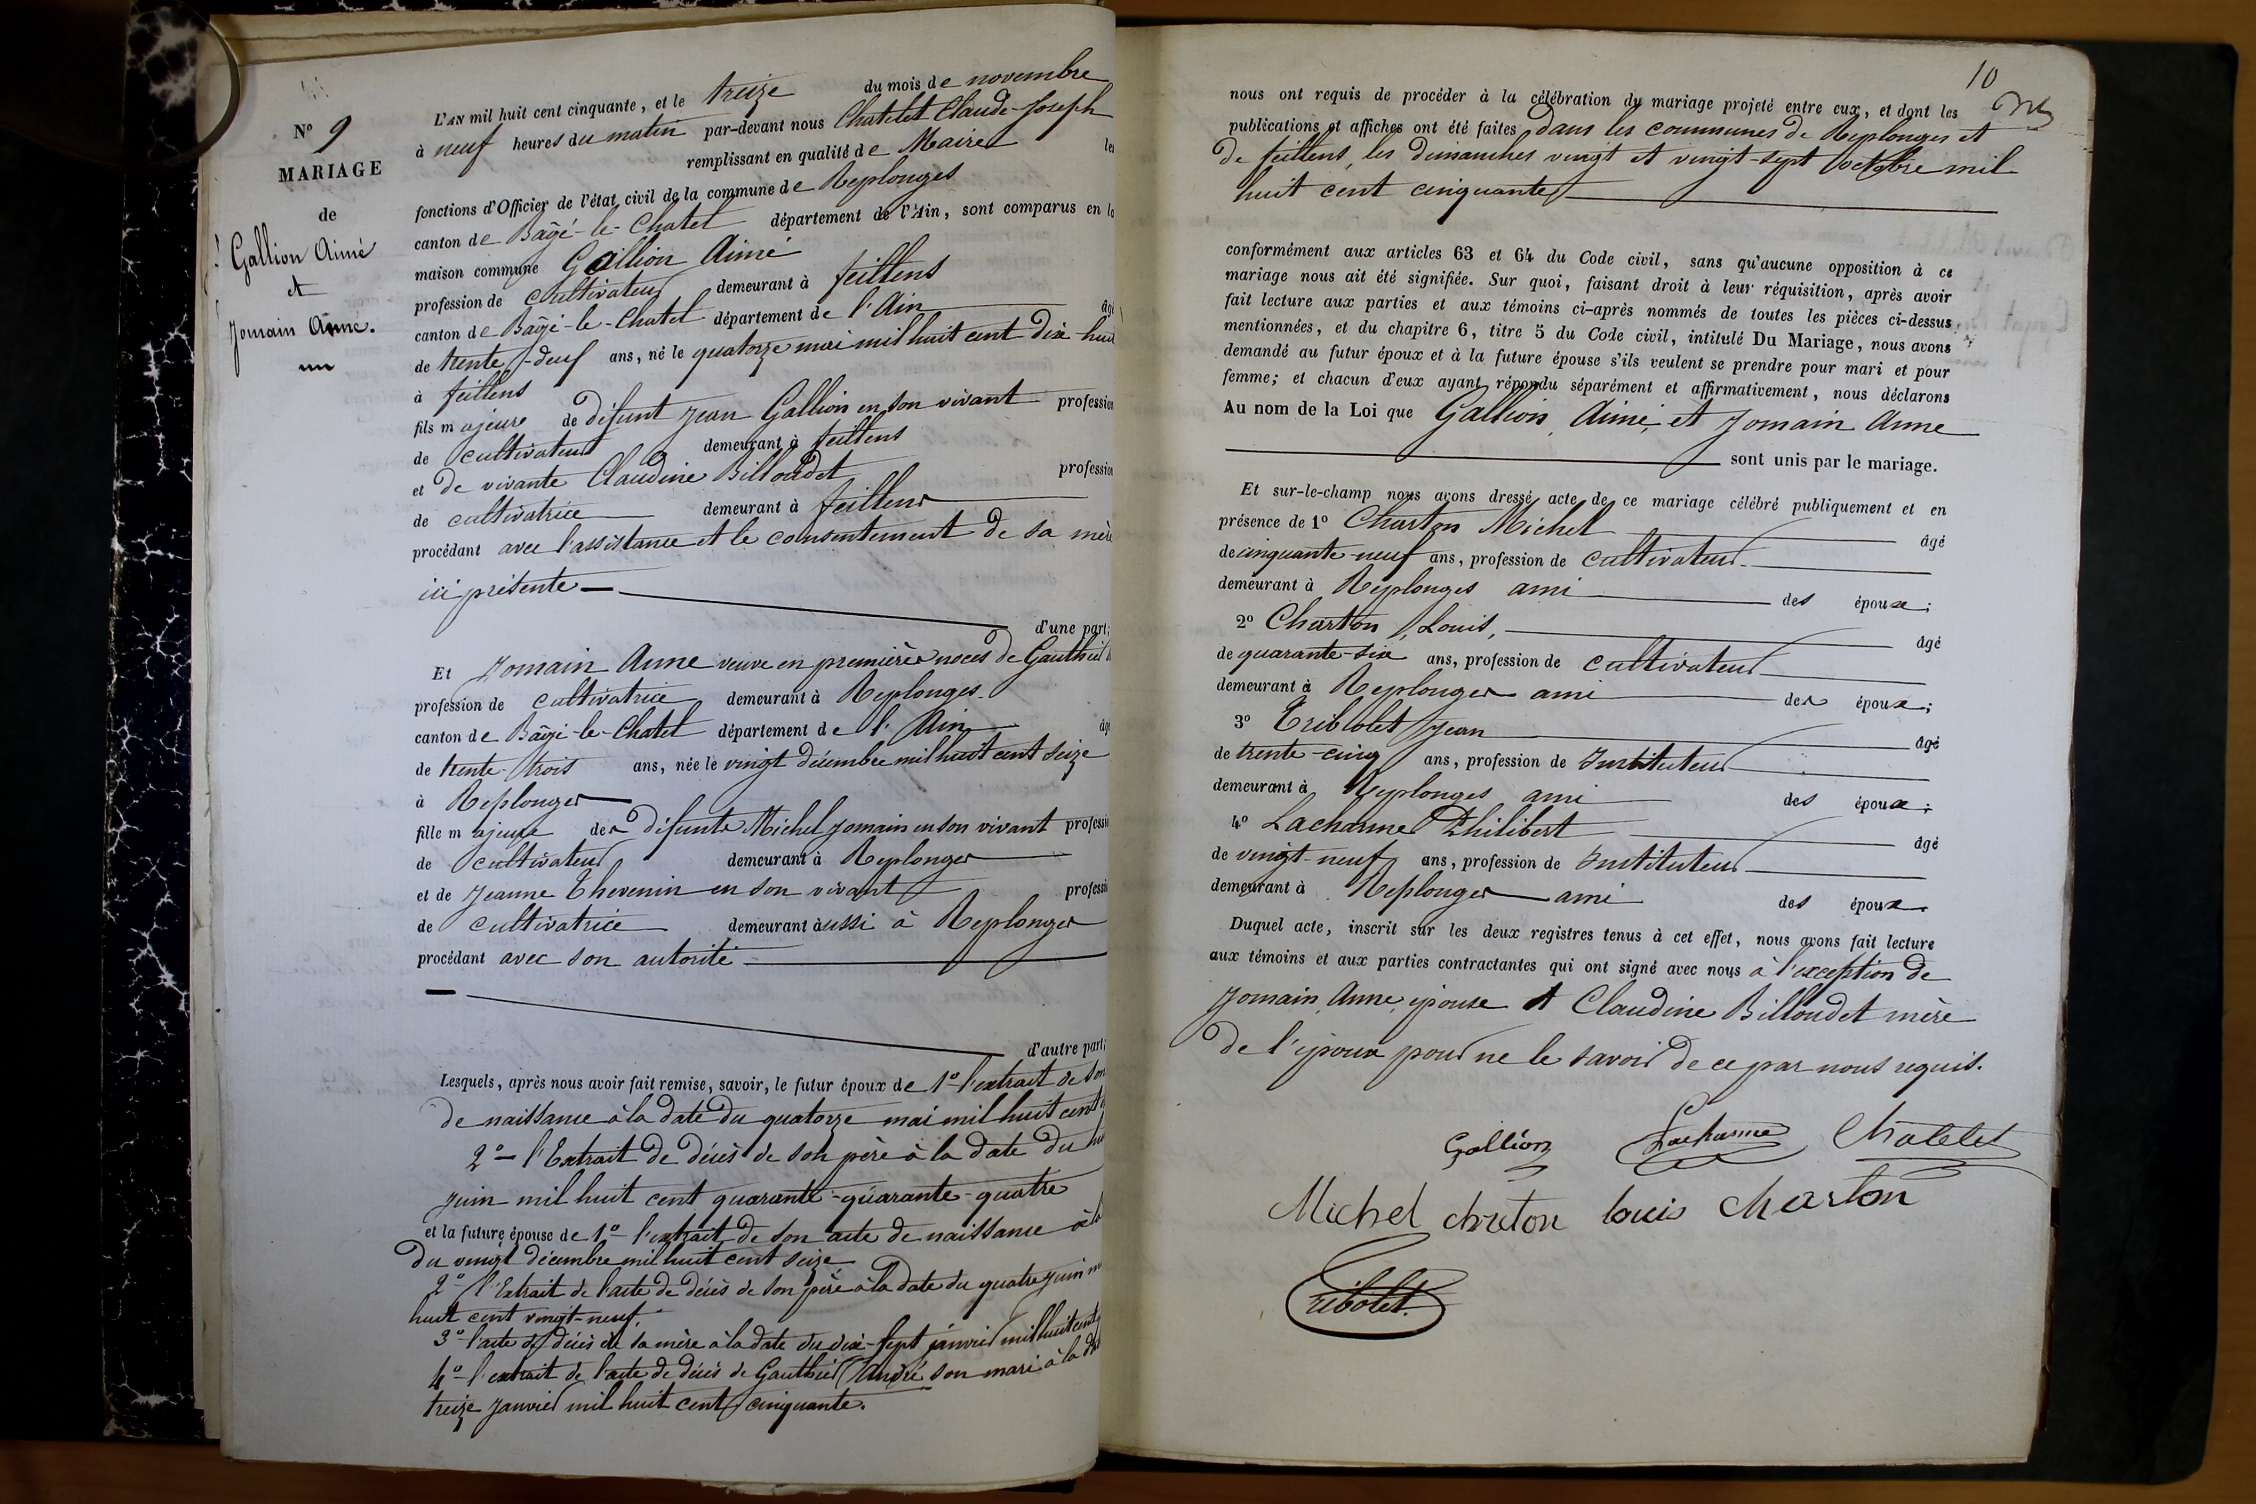 N° 9
MARIAGE
de
Gallion Aimé
et
Jomain Anne.
L'AN mil huit cent cinquante, et le treize du mois de novembre
à neuf heures du matin par-devant nous Chatelet Claude-Joseph
remplissant en qualité de Maire les
fonctions d'Officier de l'état civil de la commune de Replonges
canton de Bâgé-le-Chatel département de l'Ain, sont comparus en la
maison commune Gallion Aimé
profession de cultivateur demeurant à feillens
canton de Bâgé-le-Chatel département de l'Ain âgé
de trente-deux ans, né le quatorze mai mil huit cent dix-huit
à feillens
fils majeure de défunt Jean Gallion en son vivant profession
de cultivateur demeurant à feillens
et de vivante Claudine Billoudet profession
de cultivatrice demeurant à feillens
procédant avec l'assistance et le consentement de sa mère
ici présente
d'une part;
Et Jomain Anne veuve en premières noces de Gauthier
profession de cultivatrice demeurant à Replonges
canton de Bâgé-le-Chatel département de l'Ain âgé
de trente-trois ans, née le vingt décembre mil huit cent seize
à Replonges
fille majeure des défunts Michel Jomain en son vivant profession
de cultivateur demeurant à Replonges
et de Jeanne Thevenin en son vivant profession
de cultivatrice demeurant aussi à Replonges
procédant avec son autorité
d'autre part;
Lesquels, après nous avoir fait remise, savoir, le futur époux de 1° l'extrait de son
de naissance à la date du quatorze mai mil huit cent
2° l'Extrait de décès de son père à la date du
juin mil huit cent quarante-quarante-quatre
et la future épouse de 1° l'extrait de son acte de naissance à la
du vingt décembre mil huit cent seize
2° l'Extrait de l'acte de décès de son père à la date du quatre juin
huit cent vingt-neuf.
3° l'acte de décès de sa mère à la date du dix-sept janvier mil huit cent
4° l'extrait de l'acte de décès de Gauthier André son mari à la
treize janvier mil huit cent cinquante.
10
nous ont requis de procéder à la célébration du mariage projeté entre eux, et dont les
publications et affiches ont été faites dans les communes de Replonges et
de feillens, les dimanches vingt et vingt-sept octobre mil
huit cent cinquante
conformément aux articles 63 et 64 du Code civil, sans qu'aucune opposition à ce
mariage nous ait été signifiée. Sur quoi, faisant droit à leur réquisition, après avoir
fait lecture aux parties et aux témoins ci-après nommés de toutes les pièces ci-dessus
mentionnées, et du chapitre 6, titre 5 du Code civil, intitulé Du Mariage, nous avons
demandé au futur époux et à la future épouse s'ils veulent se prendre pour mari et pour
femme; et chacun d'eux ayant répondu séparément et affirmativement, nous déclarons
Au nom de la Loi que Gallion Aimé, et Jomain Anne
sont unis par le mariage.
Et sur-le-champ nous avons dressé acte de ce mariage célébré publiquement et en
présence de 1° Charton Michel âgé
de cinquante-neuf ans, profession de cultivateur
demeurant à Replonges ami des époux;
2° Charton, Louis, âgé
de quarante-six ans, profession de cultivateur
demeurant à Replonges ami des époux;
3° Tribolet Jean âgé
de trente-cinq ans, profession de Instituteur
demeurant à Replonges ami des époux;
4° Lacharme Philibert âgé
de vingt-neuf ans, profession de Instituteur
demeurant à Replonges ami des époux.
Duquel acte, inscrit sur les deux registres tenus à cet effet, nous avons fait lecture
aux témoins et aux parties contractantes qui ont signé avec nous à l'exception de
Jomain Anne, épouse et Claudine Billoudet mère
de l'époux pour ne le savoir de ce par nous requis.
Gallion Lacharme Chatelet
Michel charton louis charton
Tribolet.